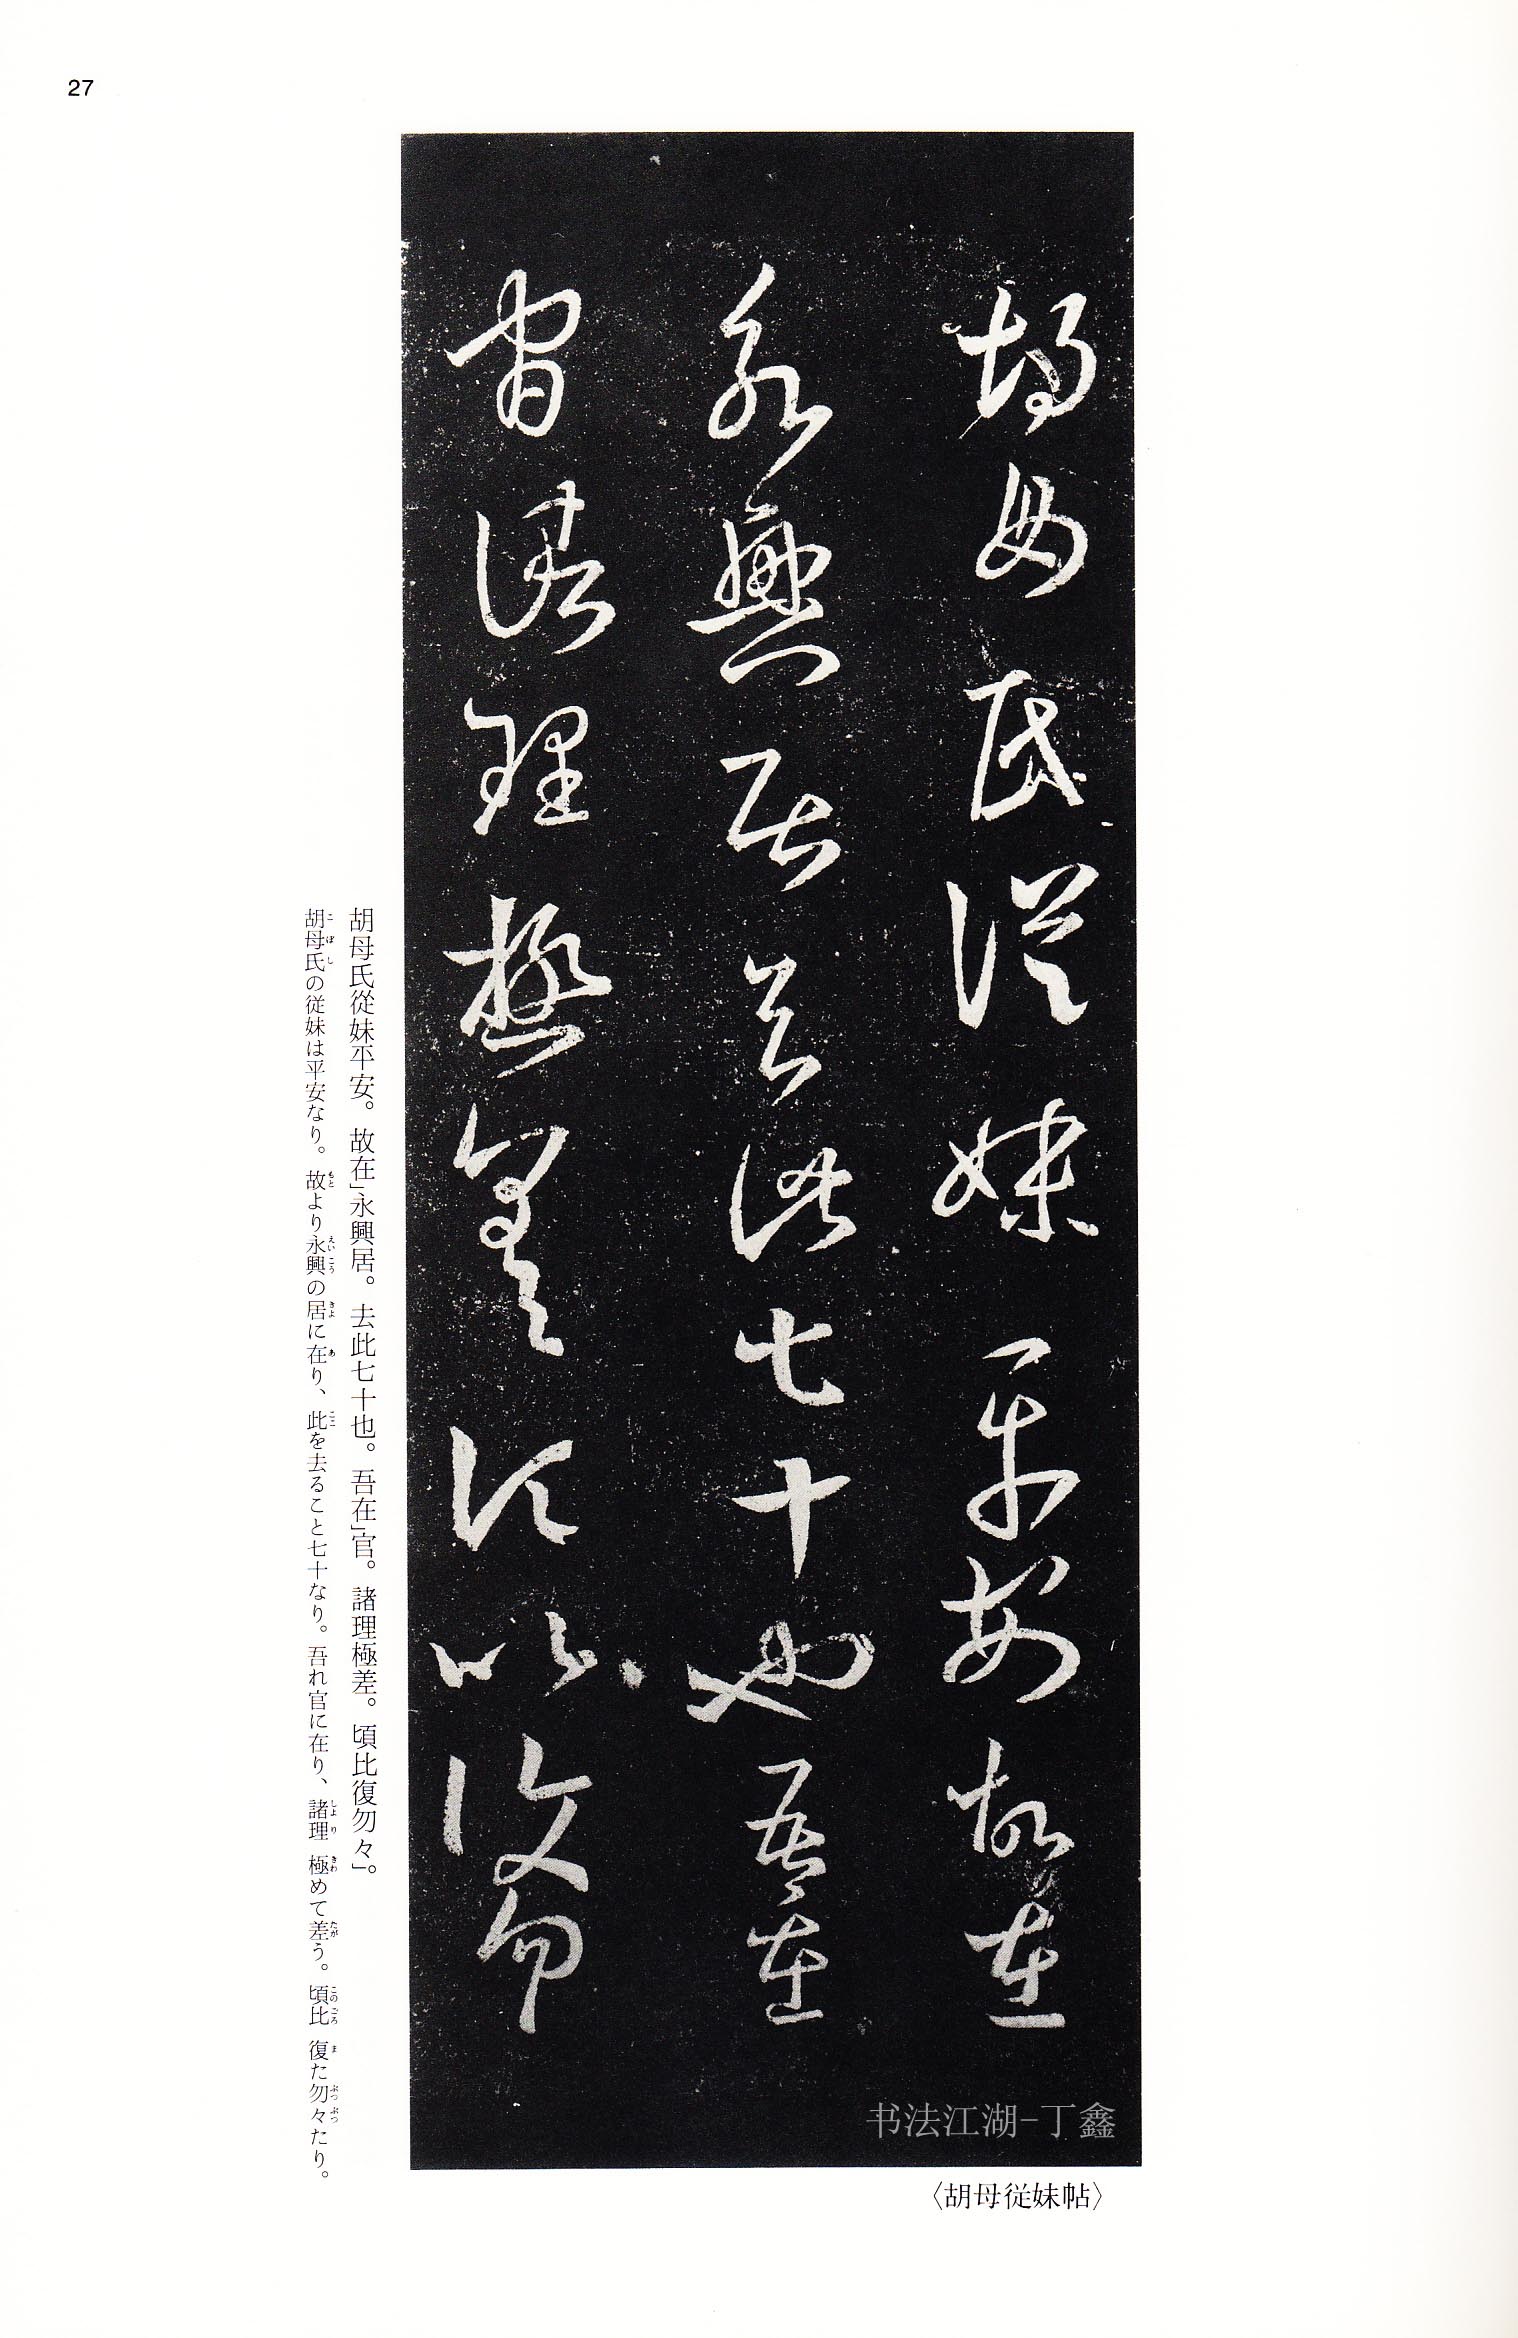 27
胡母氏從妹平安故在
永興居去此七十也吾在
官諸理極差頃比復勿
〈胡母従妹帖〉
胡母氏從妹平安。故在」永興居。去此七十也。吾在」官。諸理極差。頃比復勿々」。
胡母氏の従妹は平安なり。故より永興の居に在り、此を去ること七十なり。吾れ官に在り、諸理極めて差う。頃比復た勿々たり。
书法江湖-丁鑫